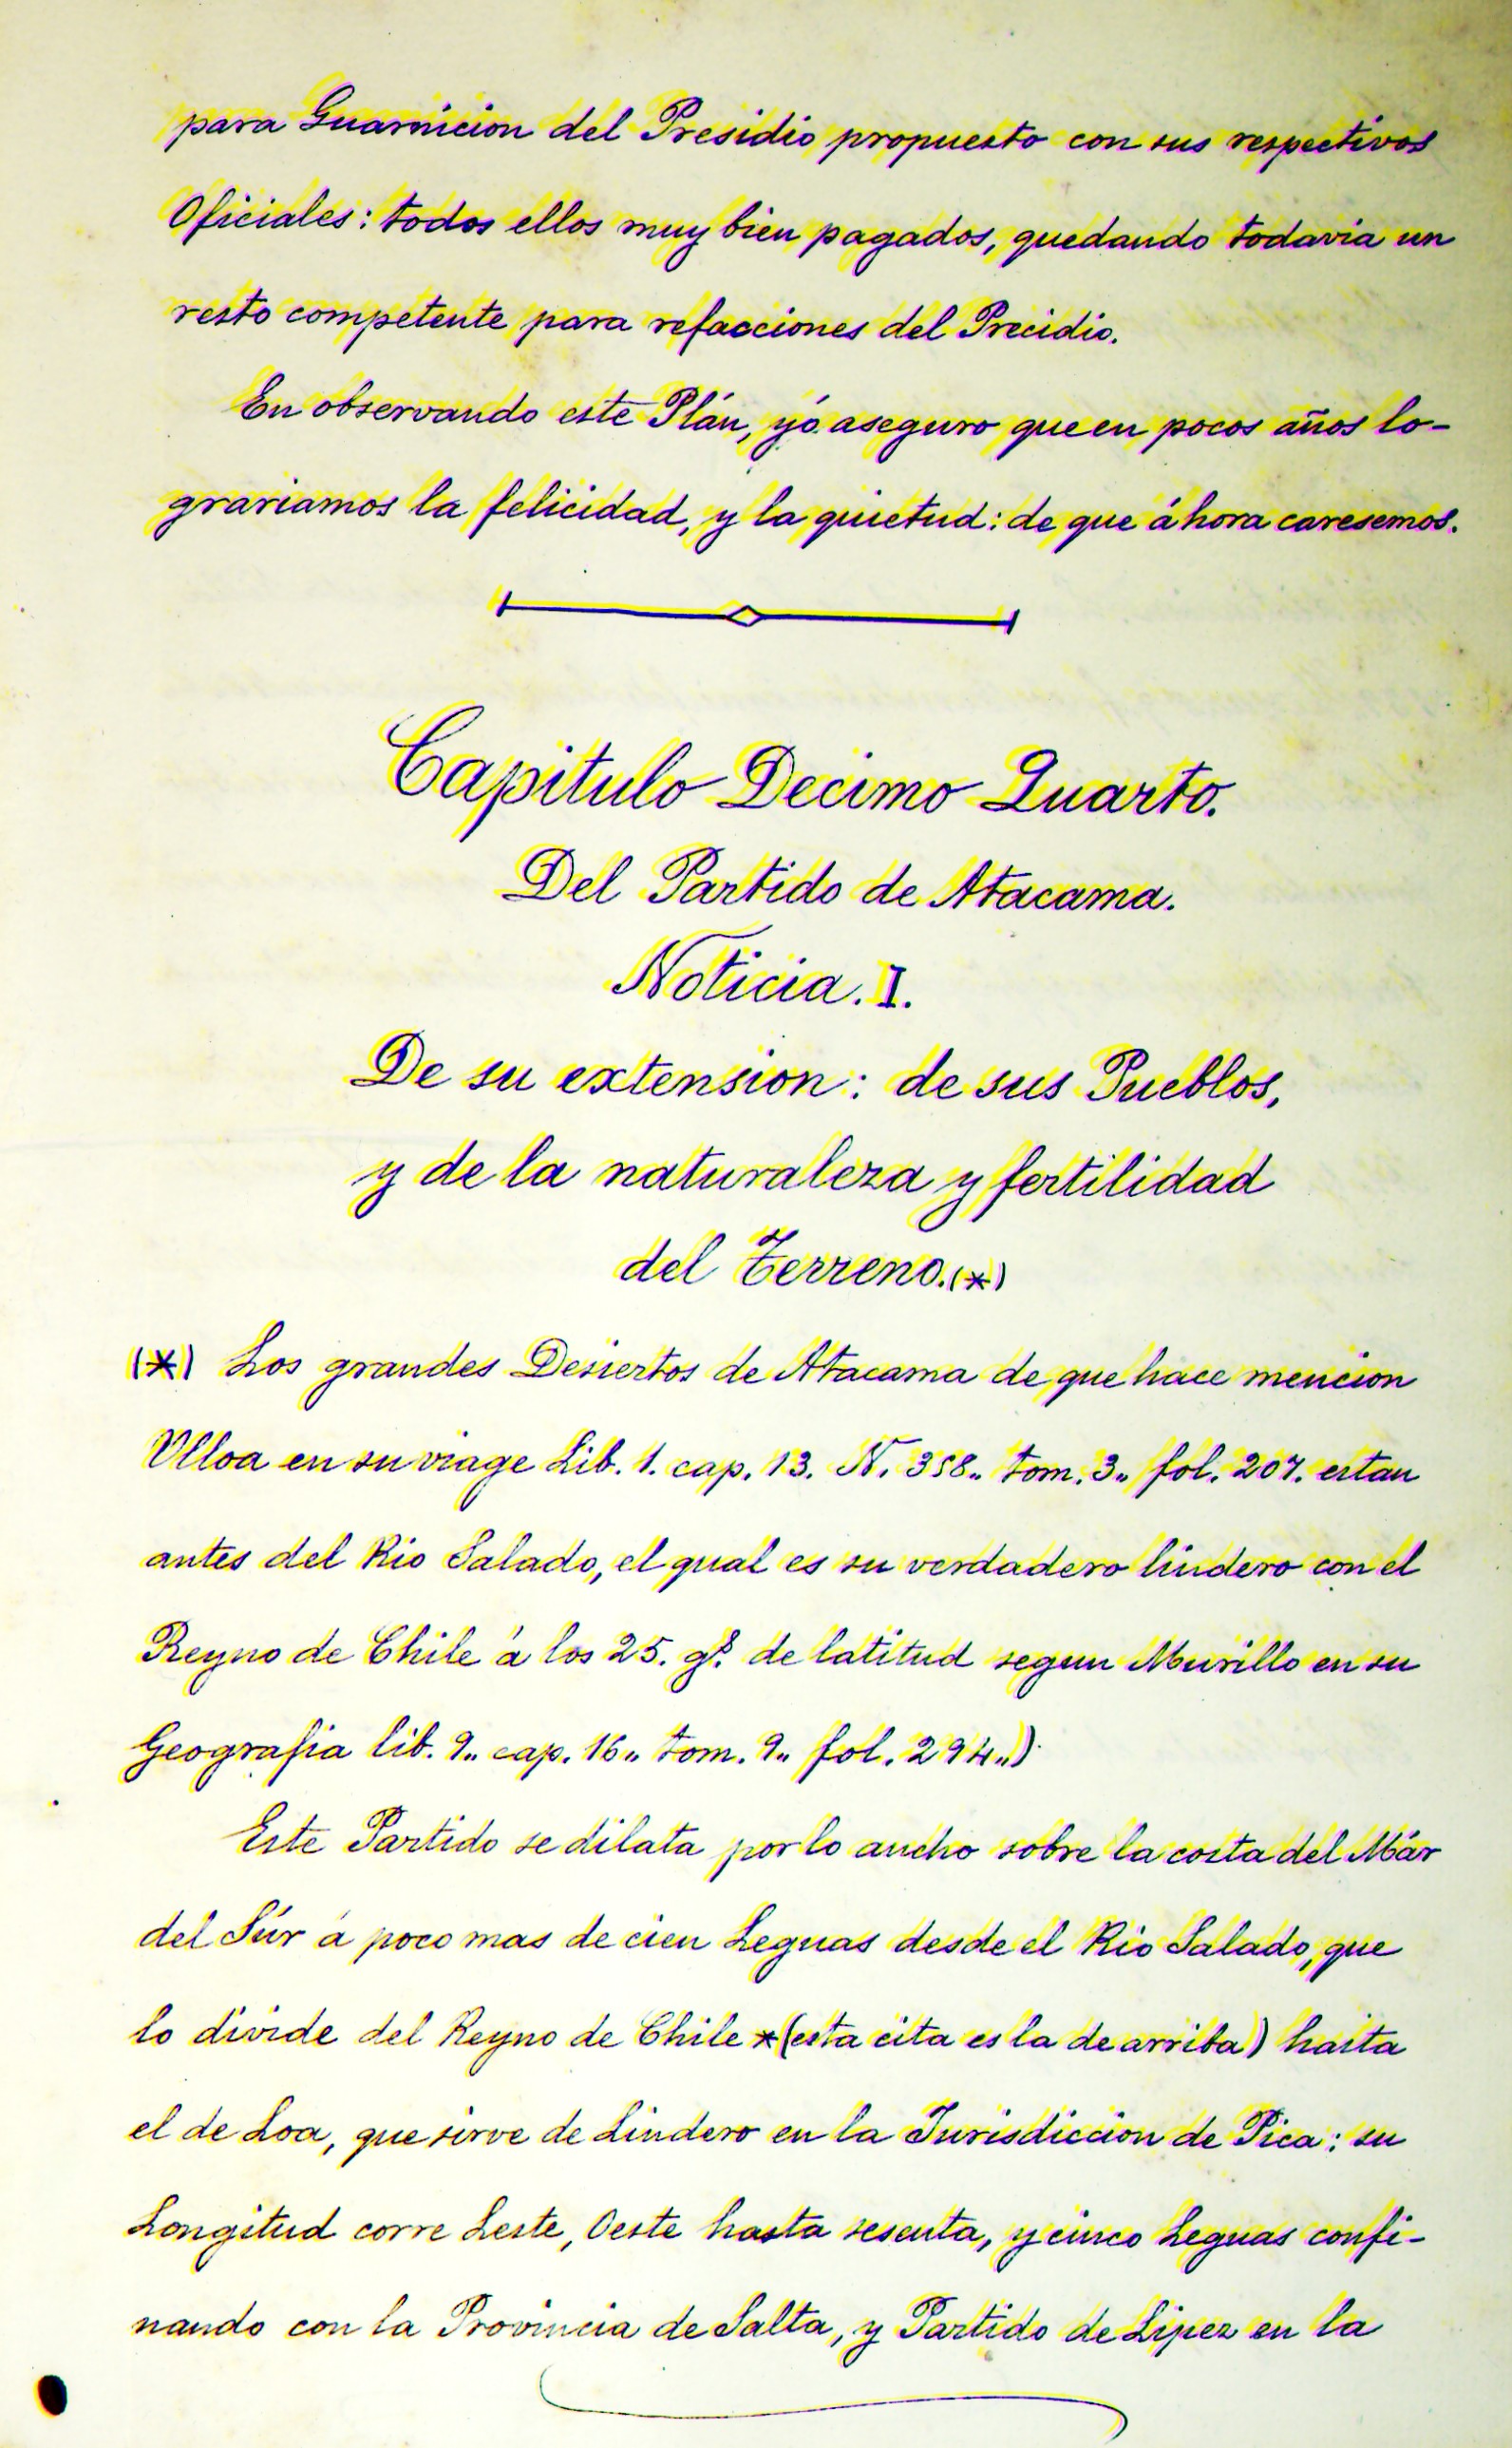 para Guarnicion del Presidio propuesto con sus respectivos
Oficiales: todos ellos muy bien pagados, quedando todavia un
resto competente para refacciones del Precidio.
En observando este Plán, yó aseguro que en pocos años lo-
grariamos la felicidad, y la quietud: de que áhora caresemos.
Capitulo Decimo Quarto.
Del Partido de Atacama.
Noticia. I.
De su extension: de sus Pueblos,
y de la naturaleza y fertilidad
del Terreno.(*)
(*) Los grandes Desiertos de Atacama de que hace mencion
Ulloa en su viage Lib. 1. cap. 13. N. 358.. tom. 3.. fol. 207. estan
antes del Rio Salado, el qual es su verdadero lindero con el
Reyno de Chile á los 25. gs. de latitud segun Murillo en su
Geografia lib. 9.. cap. 16.. tom. 9.. fol. 294..)
Este Partido se dilata por lo ancho sobre la costa del Már
del Súr á poco mas de cien Leguas desde el Rio Salado, que
lo divide del Reyno de Chile *(esta cita es la de arriba) hasta
el de Loa, que sirve de Lindero en la Jurisdiccion de Pica: su
Longitud corre Leste, Oeste hasta sesenta, y cinco Leguas confi-
nando con la Provincia de Salta, y Partido de Lipez en la